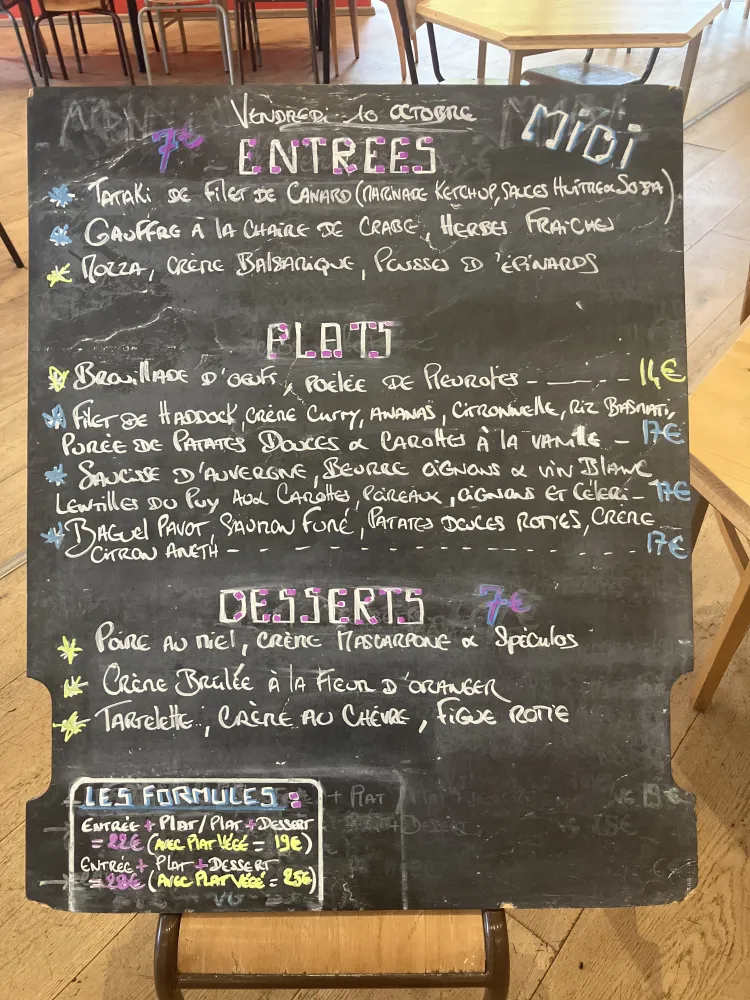 VENDREDI 10 OCTOBRE
MIDI
7€ ENTREES
TATAKI DE FILET DE CANARD (MARINADE KETCHUP, SAUCES HUÎTRE & SOJA)
GAUFFRE À LA CHAIRE DE CRABE, HERBES FRAICHES
MOZZA, CRÈME BALSAMIQUE, POUSSES D'ÉPINARDS
PLATS
BROUILLADE D'OEUFS, POÊLÉE DE PLEUROTES - - - - 14€
FILET DE HADDOCK, CRÈME CURRY, ANANAS, CITRONNELLE, RIZ BASMATI,
PURÉE DE PATATES DOUCES & CAROTTES À LA VANILLE - 17€
SAUCISSE D'AUVERGNE, BEURRE OIGNONS & VIN BLANC
LENTILLES DU PUY AUX CAROTTES, POIREAUX, OIGNONS ET CÉLERI - 17€
BAGUEL PAVOT, SAUMON FUMÉ, PATATES DOUCES ROTIES, CRÈME
CITRON ANETH - - - - - - - - - - - - 17€
DESSERTS 7€
POIRE AU MIEL, CRÈME MASCARPONE & SPÉCULOS
CRÈME BRULÉE À LA FLEUR D'ORANGER
TARTELETTE, CRÈME AU CHÈVRE, FIGUE ROTIE
LES FORMULES :
ENTRÉE + PLAT / PLAT + DESSERT
= 22€ (AVEC PLAT VÉGÉ = 19€)
ENTRÉE + PLAT + DESSERT
= 28€ (AVEC PLAT VÉGÉ = 25€)